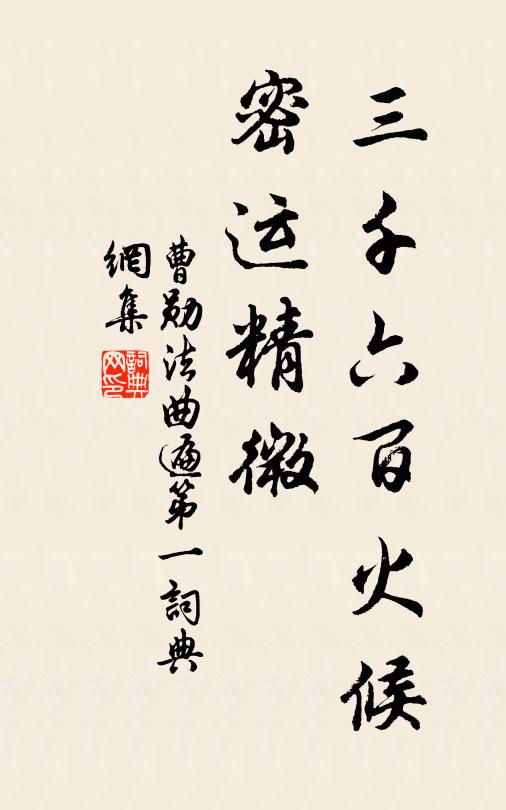 三千六百火候
密运精微
曹勋法曲遍第一詞典
網集
詞典网印